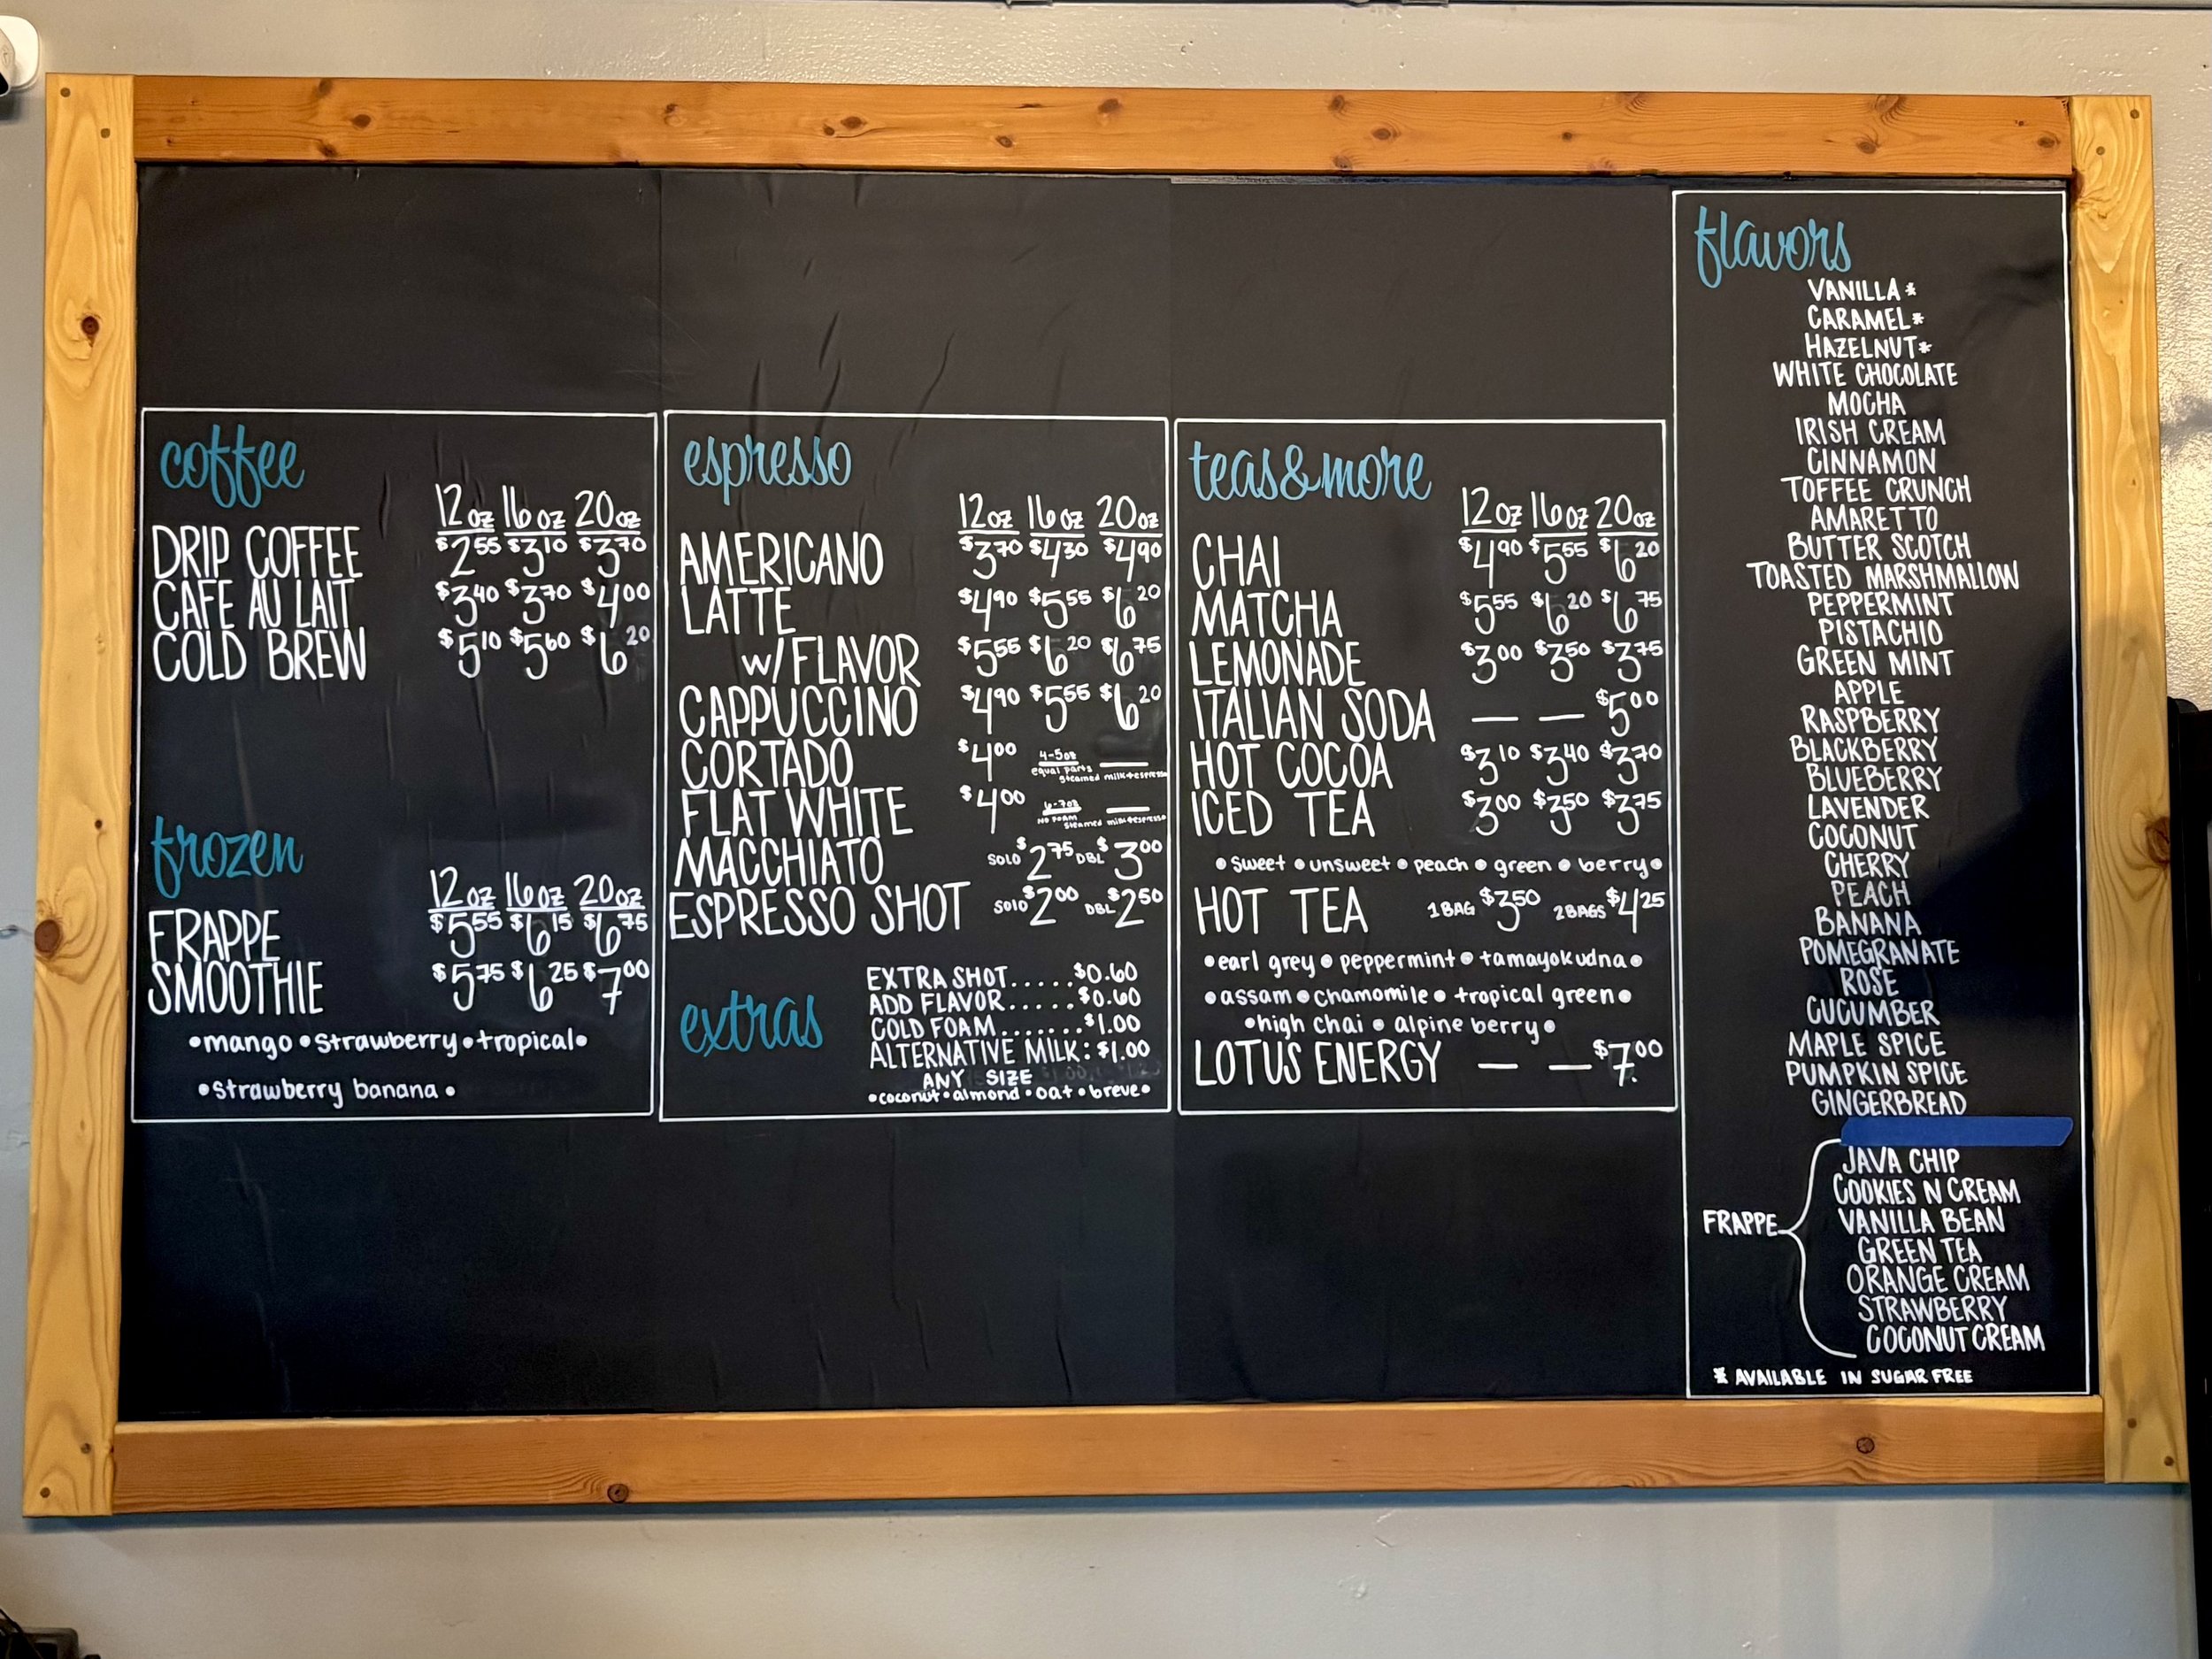 coffee
12oz 16oz 20oz
DRIP COFFEE $2.55 $3.10 $3.70
CAFE AU LAIT $3.40 $3.70 $4.00
COLD BREW $5.10 $5.60 $6.20
frozen
12oz 16oz 20oz
FRAPPE $5.55 $6.15 $6.75
SMOOTHIE $5.75 $6.25 $7.00
•mango•strawberry•tropical•
•strawberry banana•
espresso
12oz 16oz 20oz
AMERICANO $3.70 $4.30 $4.90
LATTE $4.90 $5.55 $6.20
w/FLAVOR $5.55 $6.20 $6.75
CAPPUCCINO $4.90 $5.55 $6.20
CORTADO $4.00 4-5oz equal parts steamed milk+espresso —
FLAT WHITE $4.00 6-7oz NO FOAM steamed milk+espresso —
MACCHIATO SOLO $2.75 DBL $3.00
ESPRESSO SHOT SOLO $2.00 DBL $2.50
extras
EXTRA SHOT.....$0.60
ADD FLAVOR.....$0.60
COLD FOAM.......$1.00
ALTERNATIVE MILK: $1.00
ANY SIZE
•coconut•almond•oat•breve•
teas&more
12oz 16oz 20oz
CHAI $4.90 $5.55 $6.20
MATCHA $5.55 $6.20 $6.75
LEMONADE $3.00 $3.50 $3.75
ITALIAN SODA — — $5.00
HOT COCOA $3.10 $3.40 $3.70
ICED TEA $3.00 $3.50 $3.75
•sweet•unsweet•peach•green•berry•
HOT TEA 1 BAG $3.50 2 BAGS $4.25
•earl grey•peppermint•tamayokudna•
•assam•chamomile•tropical green•
•high chai•alpine berry•
LOTUS ENERGY — — $7.00
flavors
VANILLA*
CARAMEL*
HAZELNUT*
WHITE CHOCOLATE
MOCHA
IRISH CREAM
CINNAMON
TOFFEE CRUNCH
AMARETTO
BUTTER SCOTCH
TOASTED MARSHMALLOW
PEPPERMINT
PISTACHIO
GREEN MINT
APPLE
RASPBERRY
BLACKBERRY
BLUEBERRY
LAVENDER
COCONUT
CHERRY
PEACH
BANANA
POMEGRANATE
ROSE
CUCUMBER
MAPLE SPICE
PUMPKIN SPICE
GINGERBREAD
FRAPPE
JAVA CHIP
COOKIES N CREAM
VANILLA BEAN
GREEN TEA
ORANGE CREAM
STRAWBERRY
COCONUT CREAM
* AVAILABLE IN SUGAR FREE